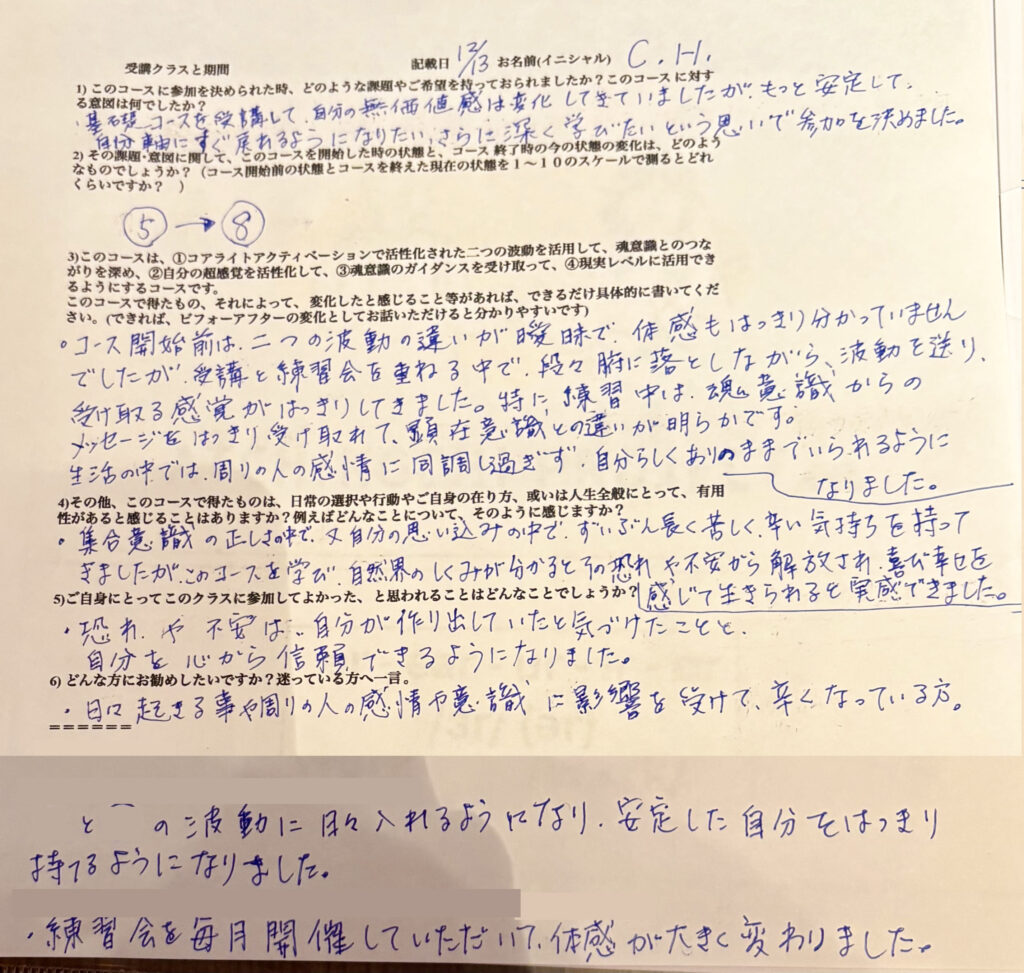 受講クラスと期間 記載日 12/13 お名前(イニシャル) C.H.
1) このコースに参加を決められた時、どのような課題やご希望を持っておられましたか？このコースに対す
る意図は何でしたか？
・基礎コースを受講して、自分の無価値感は変化してきていましたが、もっと安定して、
自分軸にすぐ戻れるようになりたい、さらに深く学びたいという思いで参加を決めました。
2) その課題・意図に関して、このコースを開始した時の状態と、コース終了時の今の状態の変化は、どのよう
なものでしょうか？（コース開始前の状態とコースを終えた現在の状態を１～１０のスケールで測るとどれ
くらいですか？ ）
⑤ → ⑧
3)このコースは、①コアライトアクティベーションで活性化された二つの波動を活用して、魂意識とのつな
がりを深め、②自分の超感覚を活性化して、③魂意識のガイダンスを受け取って、④現実レベルに活用でき
るようにするコースです。
このコースで得たもの、それによって、変化したと感じること等があれば、できるだけ具体的に書いてくだ
さい。(できれば、ビフォーアフターの変化としてお話いただけると分かりやすいです)
。コース開始前は、二つの波動の違いが曖昧で、体感もはっきり分かっていません
でしたが、受講と練習会を重ねる中で、段々腑に落としながら、波動を送り、
受け取る感覚がはっきりしてきました。特に練習中は、魂意識からの
メッセージをはっきり受け取れて、顕在意識との違いが明らかです。
生活の中では、周りの人の感情に同調し過ぎず、自分らしくありのままでいられるように
なりました。
4)その他、このコースで得たものは、日常の選択や行動やご自身の在り方、或いは人生全般にとって、有用
性があると感じることはありますか？例えばどんなことについて、そのように感じますか？
・集合意識の正しさの中で、又自分の思い込みの中で、ずいぶん長く苦しく、辛い気持ちを持って
きましたが、このコースを学び、自然界のしくみが分かるとその恐れや不安から解放され、喜び幸せを
感じて生きられると実感できました。
5)ご自身にとってこのクラスに参加してよかった、と思われることはどんなことでしょうか？
・恐れや不安は、自分が作り出していたと気づけたことと、
自分を心から信頼できるようになりました。
6) どんな方にお勧めしたいですか？迷っている方へ一言。
・日々起きる事や周りの人の感情や意識に影響を受けて、辛くなっている方。
======
と の波動に日々入れるようになり、安定した自分をはっきり
持てるようになりました。
・練習会を毎月開催していただいて、体感が大きく変わりました。